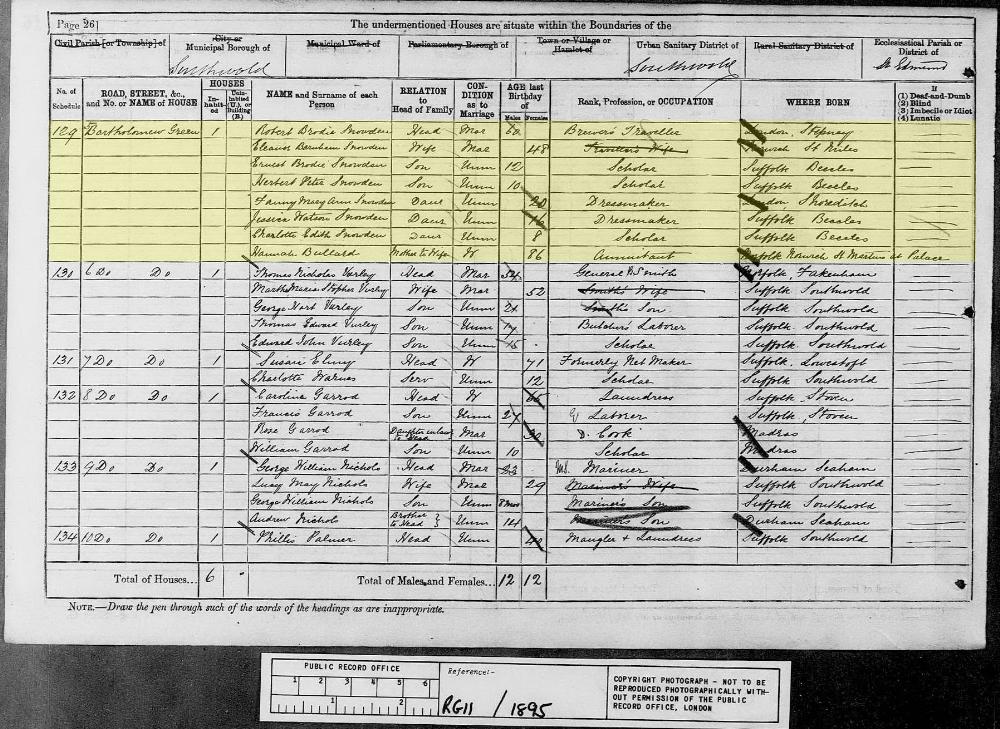 Page 26]
The undermentioned Houses are situate within the Boundaries of the
Civil Parish [or Township] of
City or Municipal Borough of
Southwold
Municipal Ward of
Parliamentary Borough of
Town or Village or Hamlet of
Urban Sanitary District of
Southwold
Rural Sanitary District of
Ecclesiastical Parish or District of
St Edmund
No. of Schedule
ROAD, STREET, &c., and No. or NAME of HOUSE
HOUSES
In-habit-ed
Unin-habited (U.), or Building (B.)
NAME and Surname of each Person
RELATION to Head of Family
CON-DITION as to Marriage
AGE last Birthday of
Males
Females
Rank, Profession, or OCCUPATION
WHERE BORN
If
(1) Deaf-and-Dumb
(2) Blind
(3) Imbecile or Idiot
(4) Lunatic
129 Bartholomew Green 1 Robert Brodie Snowden Head Mar 60 Brewer's Traveller London, Stepney
Eleanor Snowden Wife Mar 48 Traveller's Wife Norwich St Giles
Ernest Brodie Snowden Son Unm 12 Scholar Suffolk Beccles
Herbert Peter Snowden Son Unm 10 Scholar Suffolk Beccles
Fanny Mary Ann Snowden Daur Unm 20 Dressmaker London, Shoreditch
Jessica Watson Snowden Daur Unm 16 Dressmaker Suffolk Beccles
Charlotte Edith Snowden Daur Unm 8 Scholar Suffolk Beccles
Hannah Bullard Mother to Wife W 86 Annuitant Norfolk Norwich St Martins at Palace
130 6 Do Do 1 Thomas Nicholas Varley Head Mar 54 General Smith Norfolk Fakenham
Martha Maria Stopher Varley Wife Mar 52 Smith's Wife Suffolk Southwold
George Hart Varley Son Unm 24 Smith's Son Suffolk Southwold
Thomas Edward Varley Son Unm 17 Butcher's Laborer Suffolk Southwold
Edward John Varley Son Unm 15 Scholar Suffolk Southwold
131 7 Do Do 1 Susan Elmy Head W 71 Formerly Net Maker Suffolk, Lowestoft
Charlotte Warnes Serv Unm 12 Scholar Suffolk Southwold
132 8 Do Do 1 Caroline Garrod Head W 66 Laundress Suffolk, Stoven
Francis Garrod Son Unm 27 G Laborer Suffolk, Stoven
Rose Garrod Daughter in law to Head Mar 30 D. Cook Madras
William Garrod Son Unm 10 Scholar Madras
133 9 Do Do 1 George William Nichols Head Mar 23 Mariner Durham Seaham
Lucy May Nichols Wife Mar 29 Mariner's Wife Suffolk Southwold
George William Nichols Son Unm 8 Mos Mariner's Son Suffolk Southwold
Andrew Nichols Brother to Head Unm 14 Mariner's Son Durham Seaham
134 10 Do Do 1 Phillis Palmer Head Unm 40 Mangler & Laundress Suffolk Southwold
Total of Houses... 6
Total of Males and Females... 12 12
NOTE.—Draw the pen through such of the words of the headings as are inappropriate.
PUBLIC RECORD OFFICE
1 2 3 4 5 6
1 2
Reference:-
RG11 / 1895
COPYRIGHT PHOTOGRAPH - NOT TO BE
REPRODUCED PHOTOGRAPHICALLY WITH-
OUT PERMISSION OF THE PUBLIC
RECORD OFFICE, LONDON